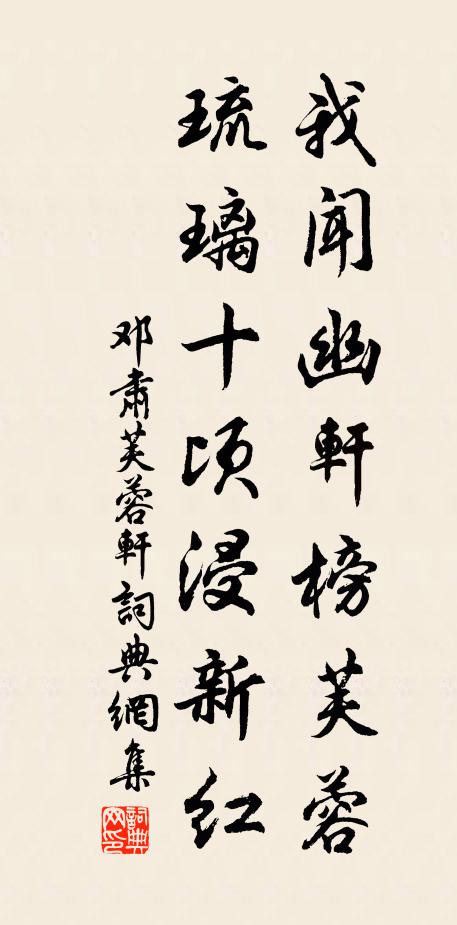 我闻幽軒榜芙蓉
琉璃十顷浸新红
邓肃芙蓉軒詞典網集
詞典网印